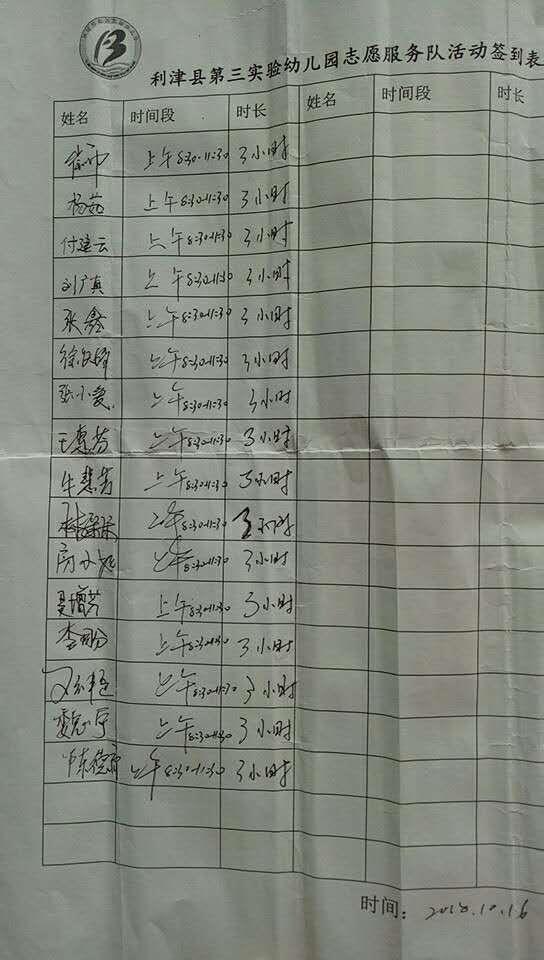 利津县第三实验幼儿园志愿服务队活动签到表
姓名 时间段 时长 姓名 时间段 时长
上午8:30-11:30 3小时
杨茹 上午8:30-11:30 3小时
付建云 上午8:30-11:30 3小时
刘广真 上午8:30-11:30 3小时
张鑫 上午8:30-11:30 3小时
上午8:30-11:30 3小时
张小爱 上午8:30-11:30 3小时
王惠芬 上午8:30-11:30 3小时
牛慧芳 上午8:30-11:30 3小时
上午8:30-11:30 3小时
上午8:30-11:30 3小时
上午8:30-11:30 3小时
上午8:30-11:30 3小时
上午8:30-11:30 3小时
上午8:30-11:30 3小时
上午8:30-11:30 3小时
时间：2018.10.16